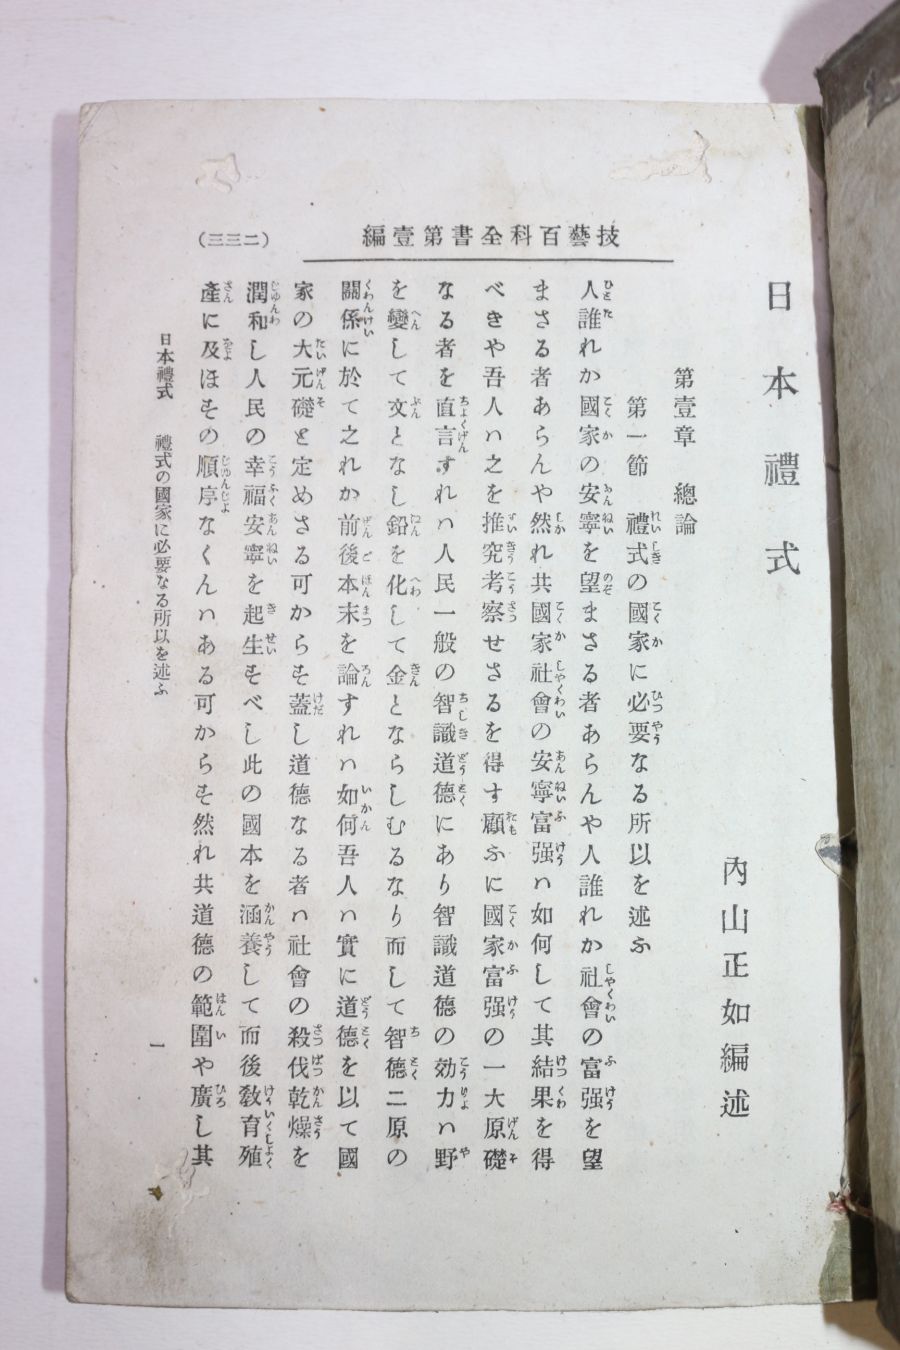 技藝百科全書第壹編
(二三三)
日本禮式
內山正如編述
第壹章　總論
第一節　禮式の國家に必要なる所以を述ふ
人誰れか國家の安寧を望まさる者あらんや人誰れか社會の富强を望
まさる者あらんや然れ共國家社會の安寧富强ハ如何して其結果を得
べきや吾人ハ之を推究考察せさるを得す顧ふに國家富强の一大原礎
なる者を直言すれハ人民一般の智識道德にあり智識道德の効力ハ野
を變して文となし鉛を化して金とならしむるなり而して智德二原の
關係に於て之れか前後本末を論すれハ如何吾人ハ實に道德を以て國
家の大元礎と定めさる可からす蓋し道德なる者ハ社會の殺伐乾燥を
潤和し人民の幸福安寧を起生すべし此の國本を涵養して而後敎育殖
產に及ほすその順序なくんハある可からす然れ共道德の範圍や廣し其
日本禮式　禮式の國家に必要なる所以を述ふ
一